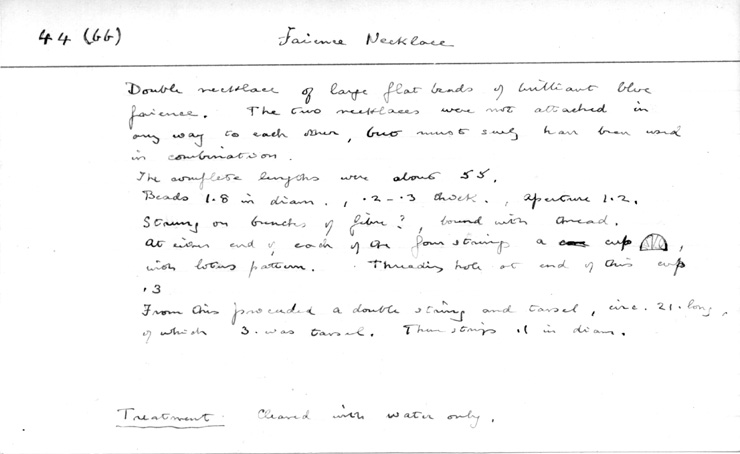 44 (bb) Faience Necklace
Double necklace of large flat beads of brilliant blue
faience. The two necklaces were not attached in
any way to each other, but must surely have been used
in combination.
The complete lengths were about 55.
Beads 1.8 in diam., .2-.3 thick., aperture 1.2.
Strung on bunches of fibre?, bound with thread.
At either end of each of the four strings a cup ,
with lotus pattern. Threading hole at end of this cup
.3
From this proceeded a double string and tassel, circ. 21. long,
of which 3. was tassel. These strings .1 in diam.
Treatment. Cleaned with water only.